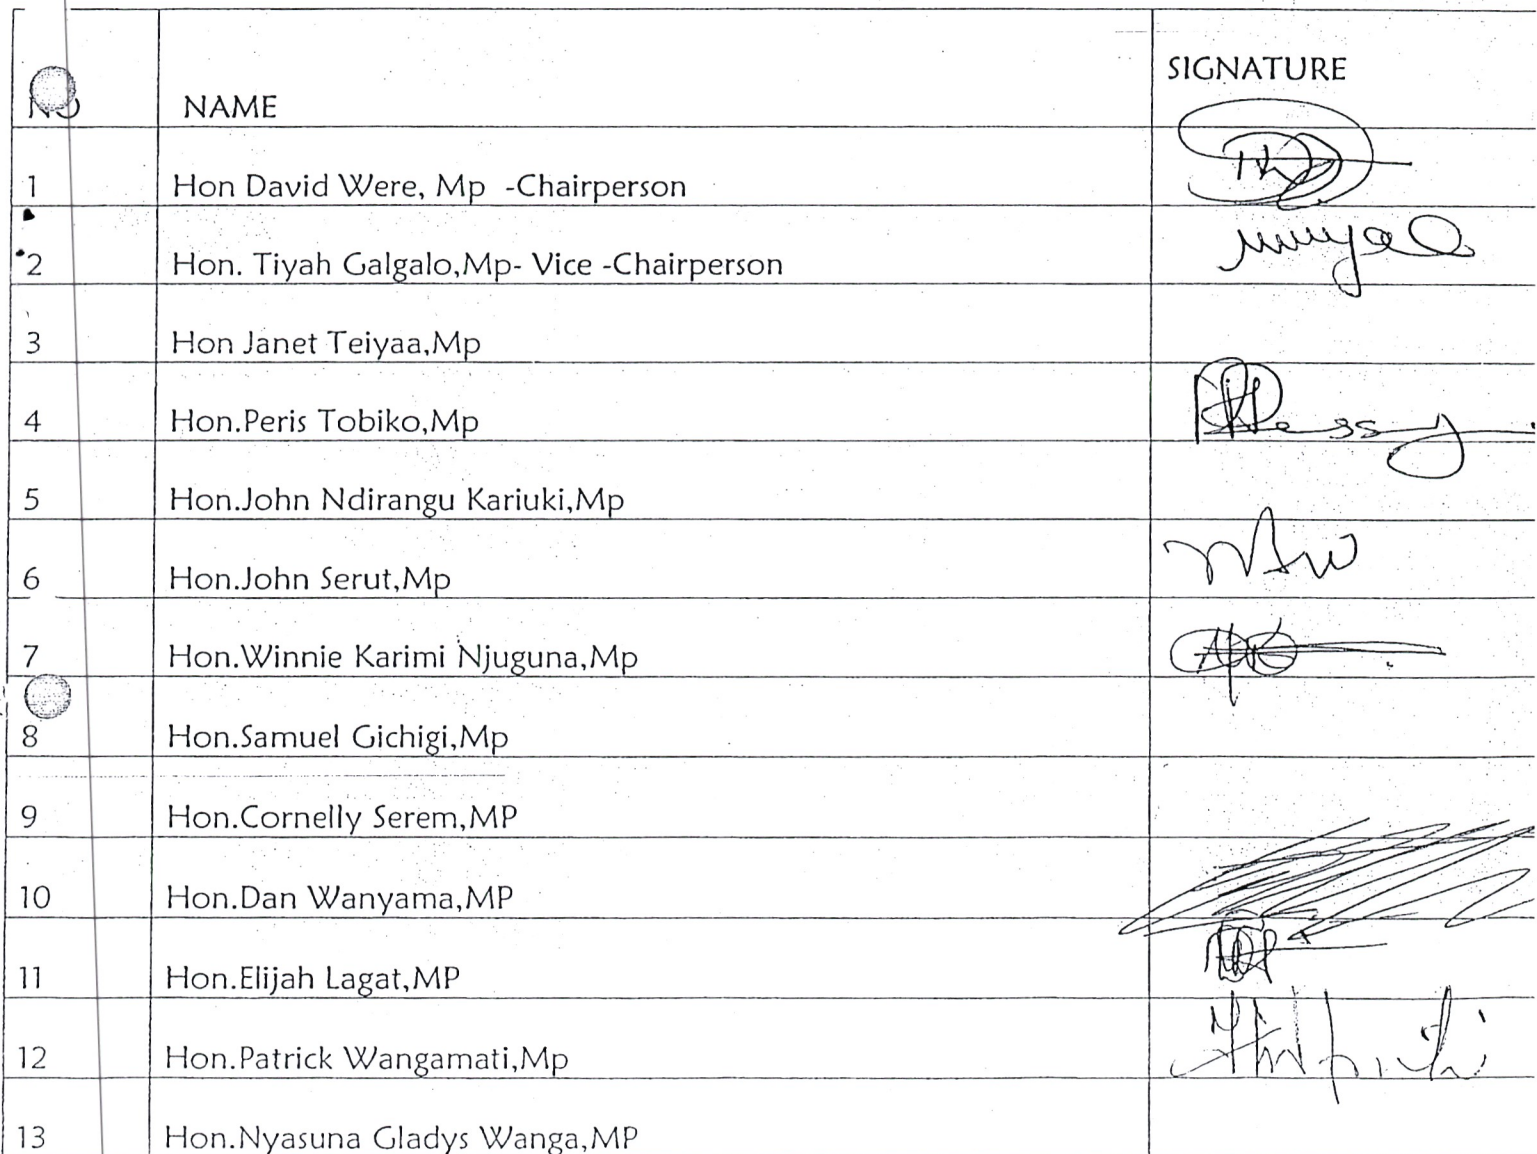 SIGNATURE
NO NAME
1 Hon David Were, Mp -Chairperson
2 Hon. Tiyah Galgalo,Mp- Vice -Chairperson
3 Hon Janet Teiyaa,Mp
4 Hon.Peris Tobiko,Mp
5 Hon.John Ndirangu Kariuki,Mp
6 Hon.John Serut,Mp
7 Hon.Winnie Karimi Njuguna,Mp
8 Hon.Samuel Gichigi,Mp
9 Hon.Cornelly Serem,MP
10 Hon.Dan Wanyama,MP
11 Hon.Elijah Lagat,MP
12 Hon.Patrick Wangamati,Mp
13 Hon.Nyasuna Gladys Wanga,MP